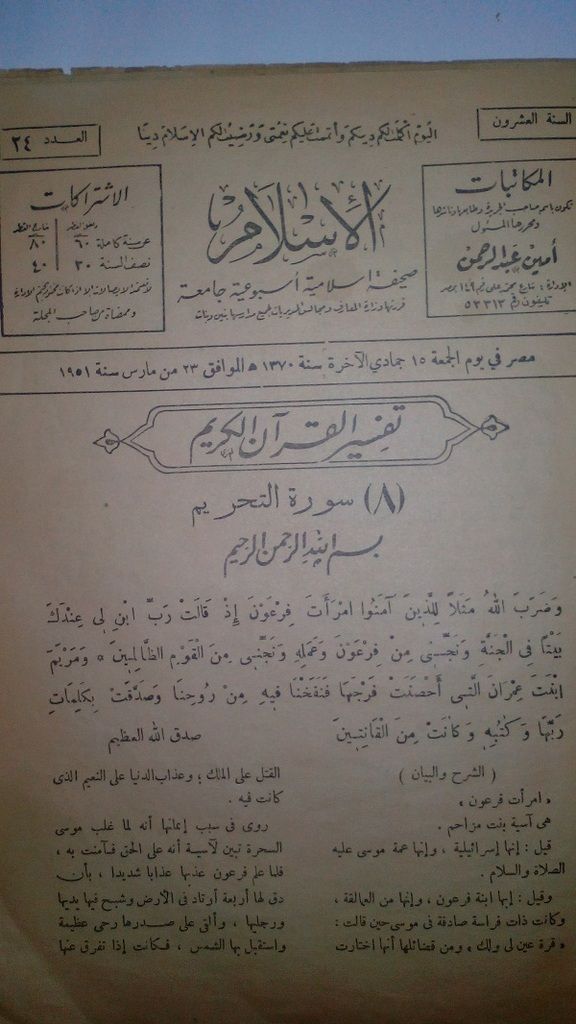 السنة العشرون
اليوم أكملت لكم دينكم وأتممت عليكم نعمتي ورضيت لكم الإسلام دينا
العدد ٢٤
المكاتبات
تكون باسم صاحب الجريدة ومديرها
ومحررها المسئول
أمين عبد الرحمن
الإدارة : شارع محمد علي نمرة ١٤٩ بمصر
تليفون رقم ٥٣٣١٣
الإسلام
صحيفة اسلامية أسبوعية جامعة
قررتها وزارة المعارف ومجالس المديريات لجميع مدارسها بنين وبنات
الاشتراكات
داخل القطر خارج القطر
عن سنة كاملة ٦٠ ٨٠
نصف السنة ٣٠ ٤٠
وممضاة من صاحب المجلة
مصر في يوم الجمعة ١٥ جمادي الآخرة سنة ١٣٧٠ ه الموافق ٢٣ من مارس سنة ١٩٥١
تفسير القرآن الكريم
(٨) سورة التحريم
بسم الله الرحمن الرحيم
وَضَرَبَ اللهُ مَثَلاً لِلَّذِينَ آمَنُوا امْرَأَتَ فِرْعَوْنَ إِذْ قَالَتْ رَبِّ ابْنِ لِى عِنْدَكَ
بَيْتًا فِى الْجَنَّةِ وَنَجِّنِى مِنْ فِرْعَوْنَ وَعَمَلِهِ وَنَجِّنِى مِنَ الْقَوْمِ الظَّالِمِينَ * وَمَرْيَمَ
ابْنَتَ عِمْرَانَ الَّتِى أَحْصَنَتْ فَرْجَهَا فَنَفَخْنَا فِيهِ مِنْ رُوحِنَا وَصَدَّقَتْ بِكَلِمَاتِ
رَبِّهَا وَكُتُبِهِ وَكَانَتْ مِنَ الْقَانِتِينَ صدق الله العظيم
( الشرح والبيان )
« امرأت فرعون »
هى آسية بنت مزاحم .
قيل : إنها إسرائيلية ، وإنها عمة موسى عليه
الصلاة والسلام .
وقيل : إنها ابنة فرعون ، وإنها من العمالقة ،
وكانت ذات فراسة صادقة فى موسى حين قالت :
« قرة عين لى ولك » ومن فضائلها أنها اختارت
القتل على الملك ؛ وعذاب الدنيا على النعيم الذى
كانت فيه .
روى فى سبب إيمانها أنه لما غلب موسى
السحرة تبين لآسية أنه على الحق فآمنت به ،
فلما علم فرعون عذبها عذابا شديدا ، بأن
دق لها أربعة أوتاد فى الأرض وشبح فيها يديها
ورجليها ، وألقى على صدرها رحى عظيمة
واستقبل بها الشمس ، فكانت إذا تفرق عنها